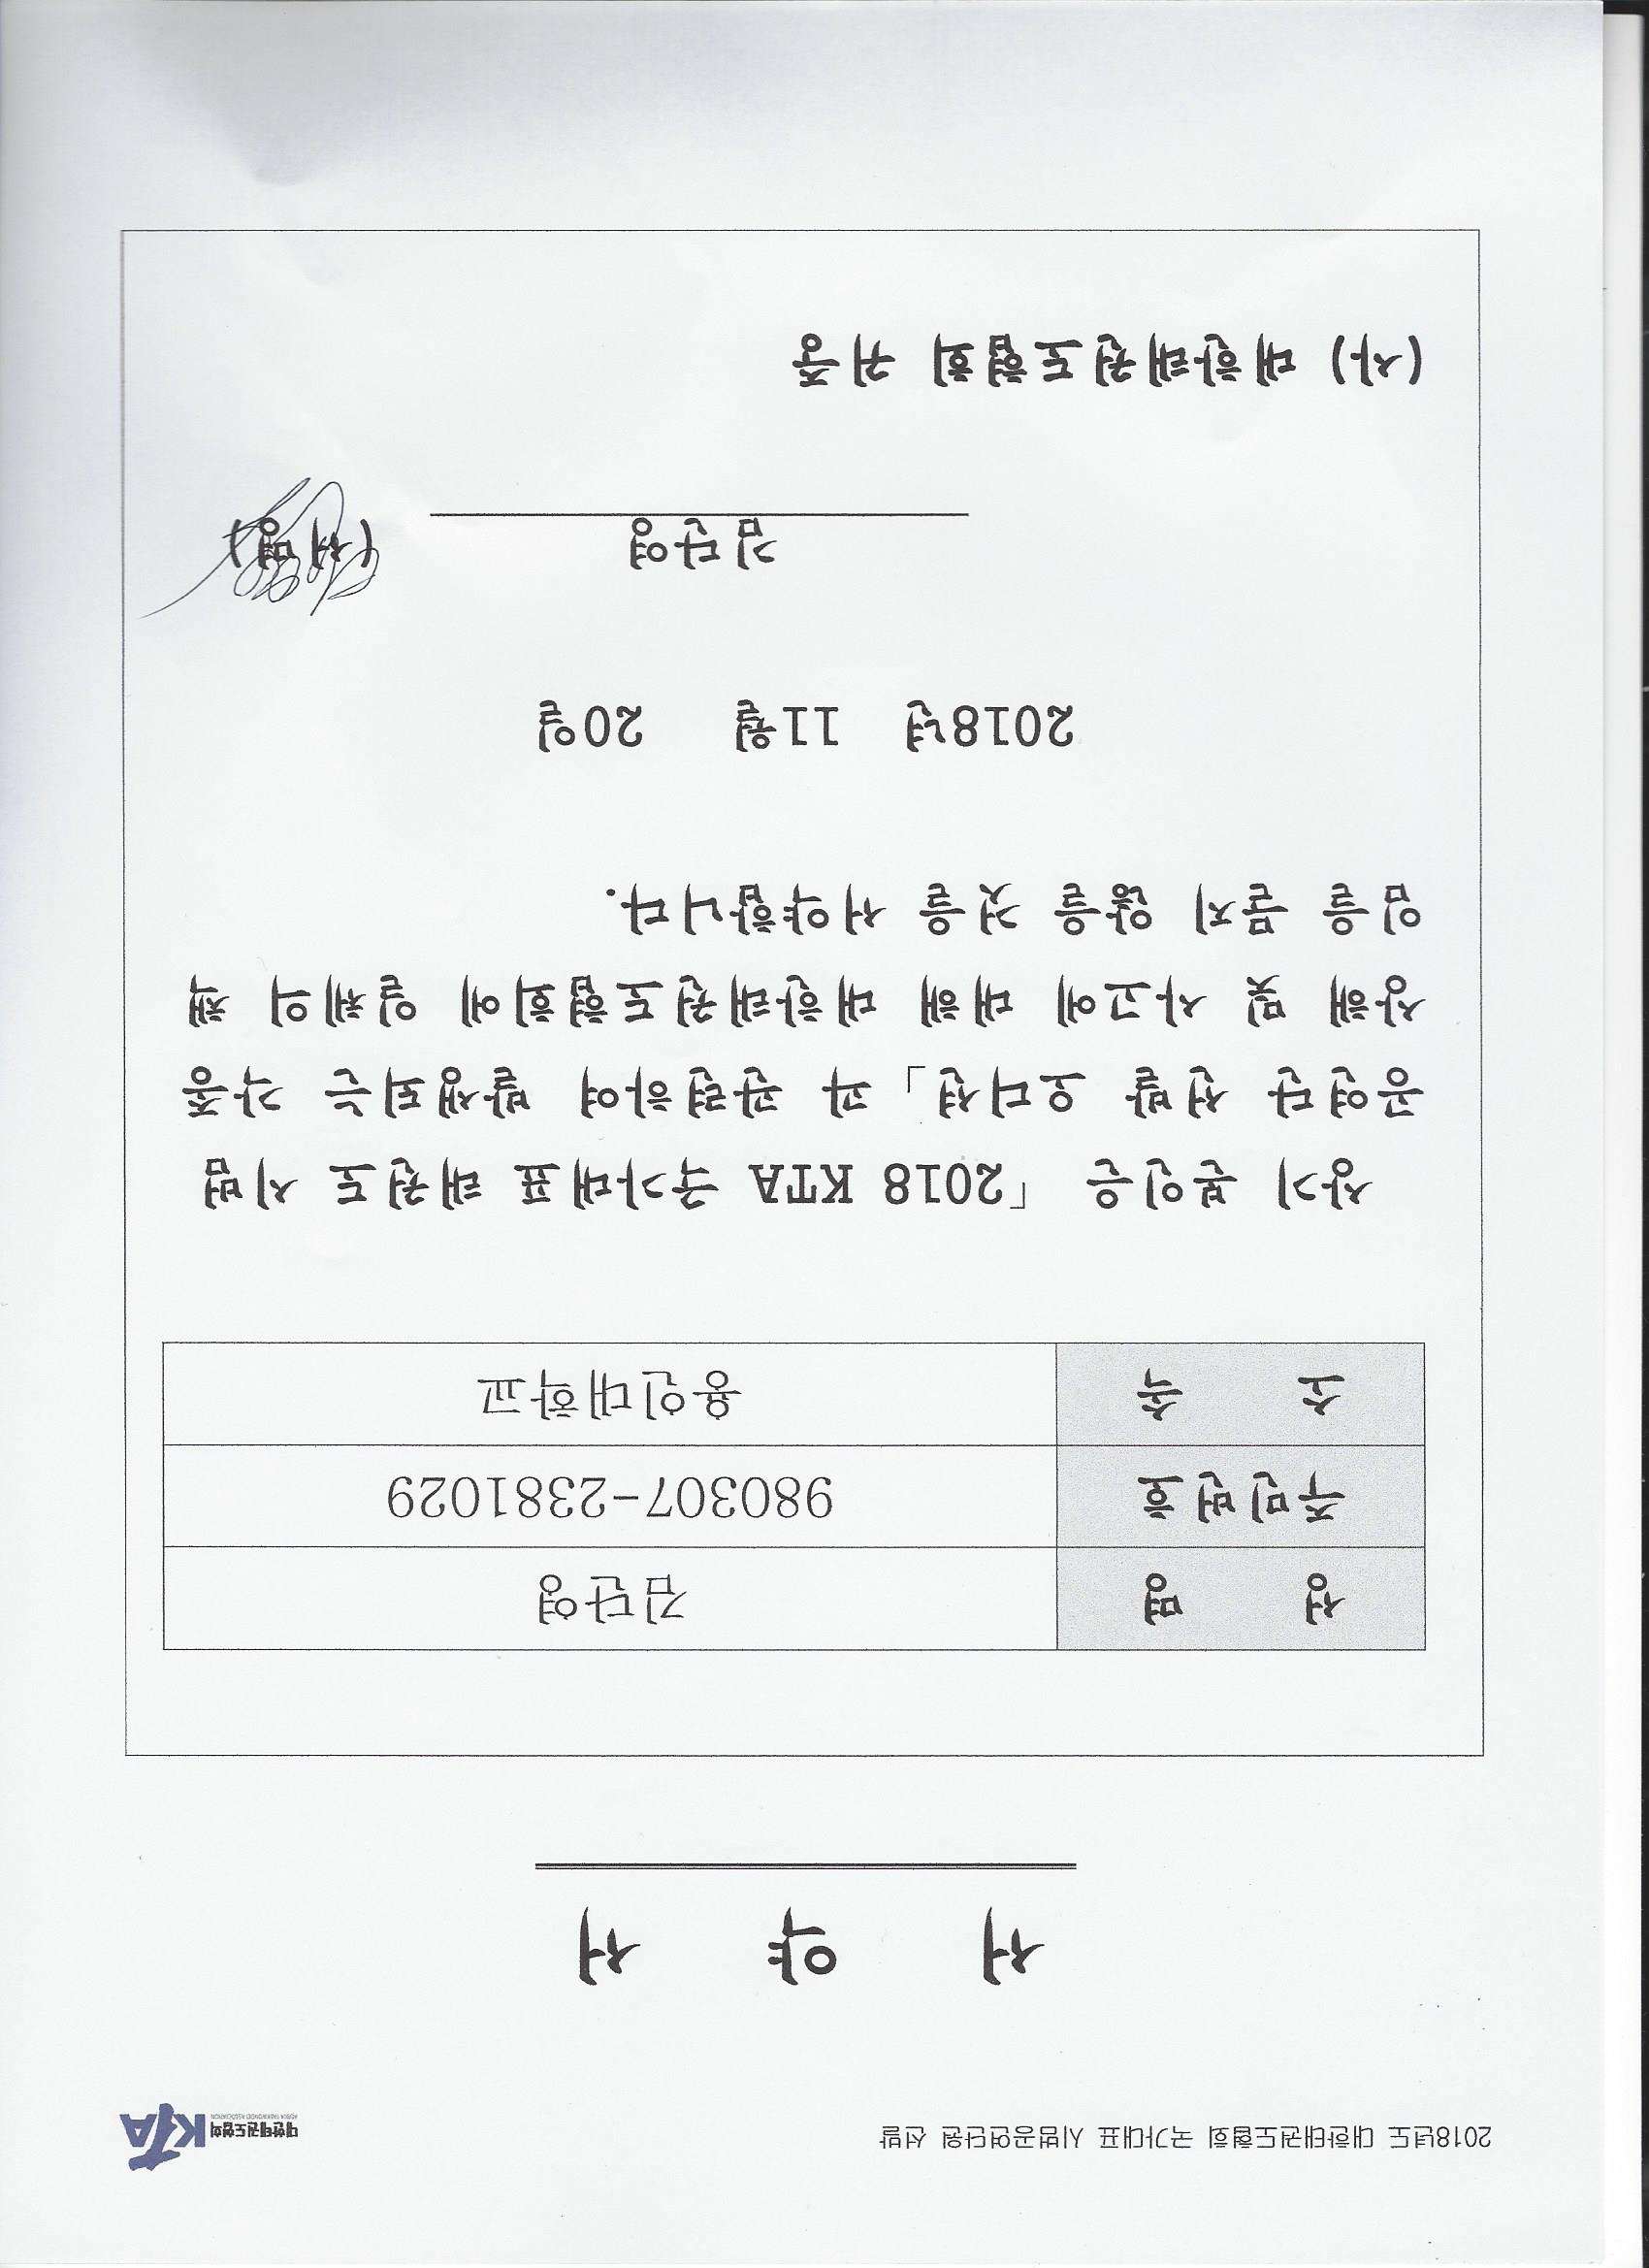 2018년도 대한태권도협회 국가대표 시범공연단원 선발
KTA 대한태권도협회
KOREA TAEKWONDO ASSOCIATION
서 약 서
성 명 김단영
주민번호 980307-2381029
소 속 용인대학교
상기 본인은 「2018 KTA 국가대표 태권도 시범
공연단 선발 오디션」과 관련하여 발생되는 각종
상해 및 사고에 대해 대한태권도협회에 일체의 책
임을 묻지 않을 것을 서약합니다.
2018년 11월 20일
김단영 (서명)
(사) 대한태권도협회 귀중